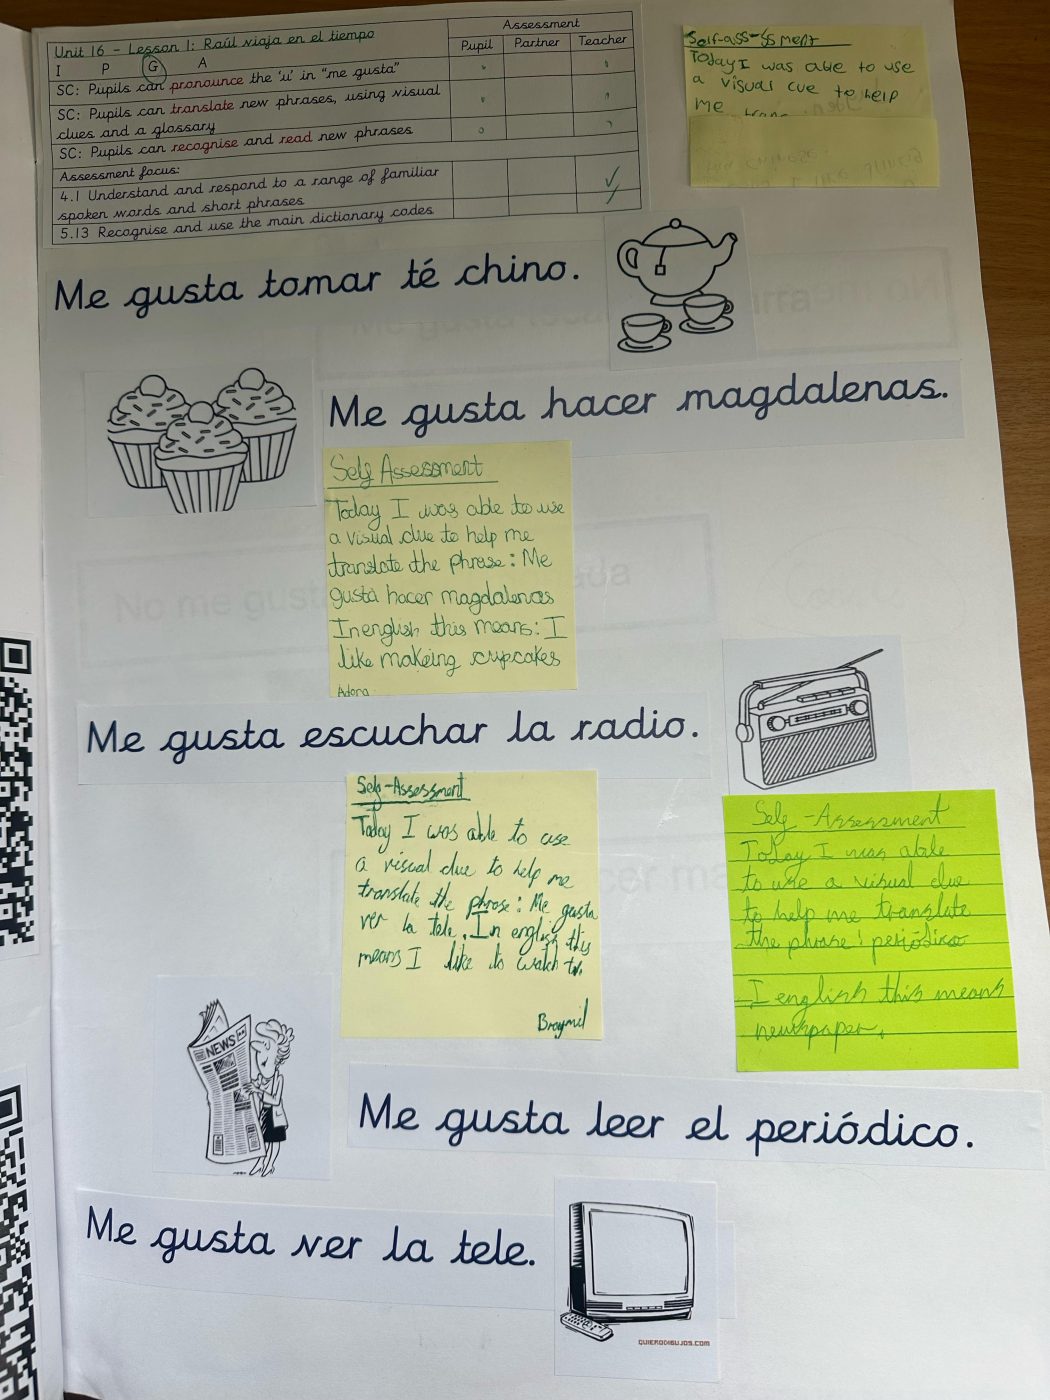 Unit 16 - Lesson 1: Raúl viaja en el tiempo
Assessment
Pupil Partner Teacher
I P G A
SC: Pupils can pronounce the 'u' in "me gusta"
SC: Pupils can translate new phrases, using visual
clues and a glossary
SC: Pupils can recognise and read new phrases
Assessment focus:
4.1 Understand and respond to a range of familiar
spoken words and short phrases
5.13 Recognise and use the main dictionary codes
Self-assessment
Today I was able to use
a visual cue to help
me
Me gusta tomar té chino.
Me gusta hacer magdalenas.
Self Assessment
Today I was able to use
a visual clue to help me
translate the phrase: Me
gusta hacer magdalenas
In english this means: I
like makeing cupcakes
Adora
Me gusta escuchar la radio.
Self-Assessment
Today I was able to use
a visual clue to help me
translate the phrase: Me gusta
ver la tele. In english this
means I like to watch tv.
Self-Assessment
Today I was able
to use a visual clue
to help me translate
the phrase: periódico
I english this means
newspaper.
NEWS
Me gusta leer el periódico.
Me gusta ver la tele.
QUIERODIBUJOS.COM